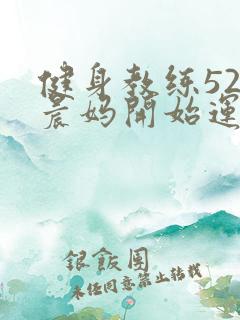 健身教练52
晨妈開始運
銀飯團
未经同意禁止转载